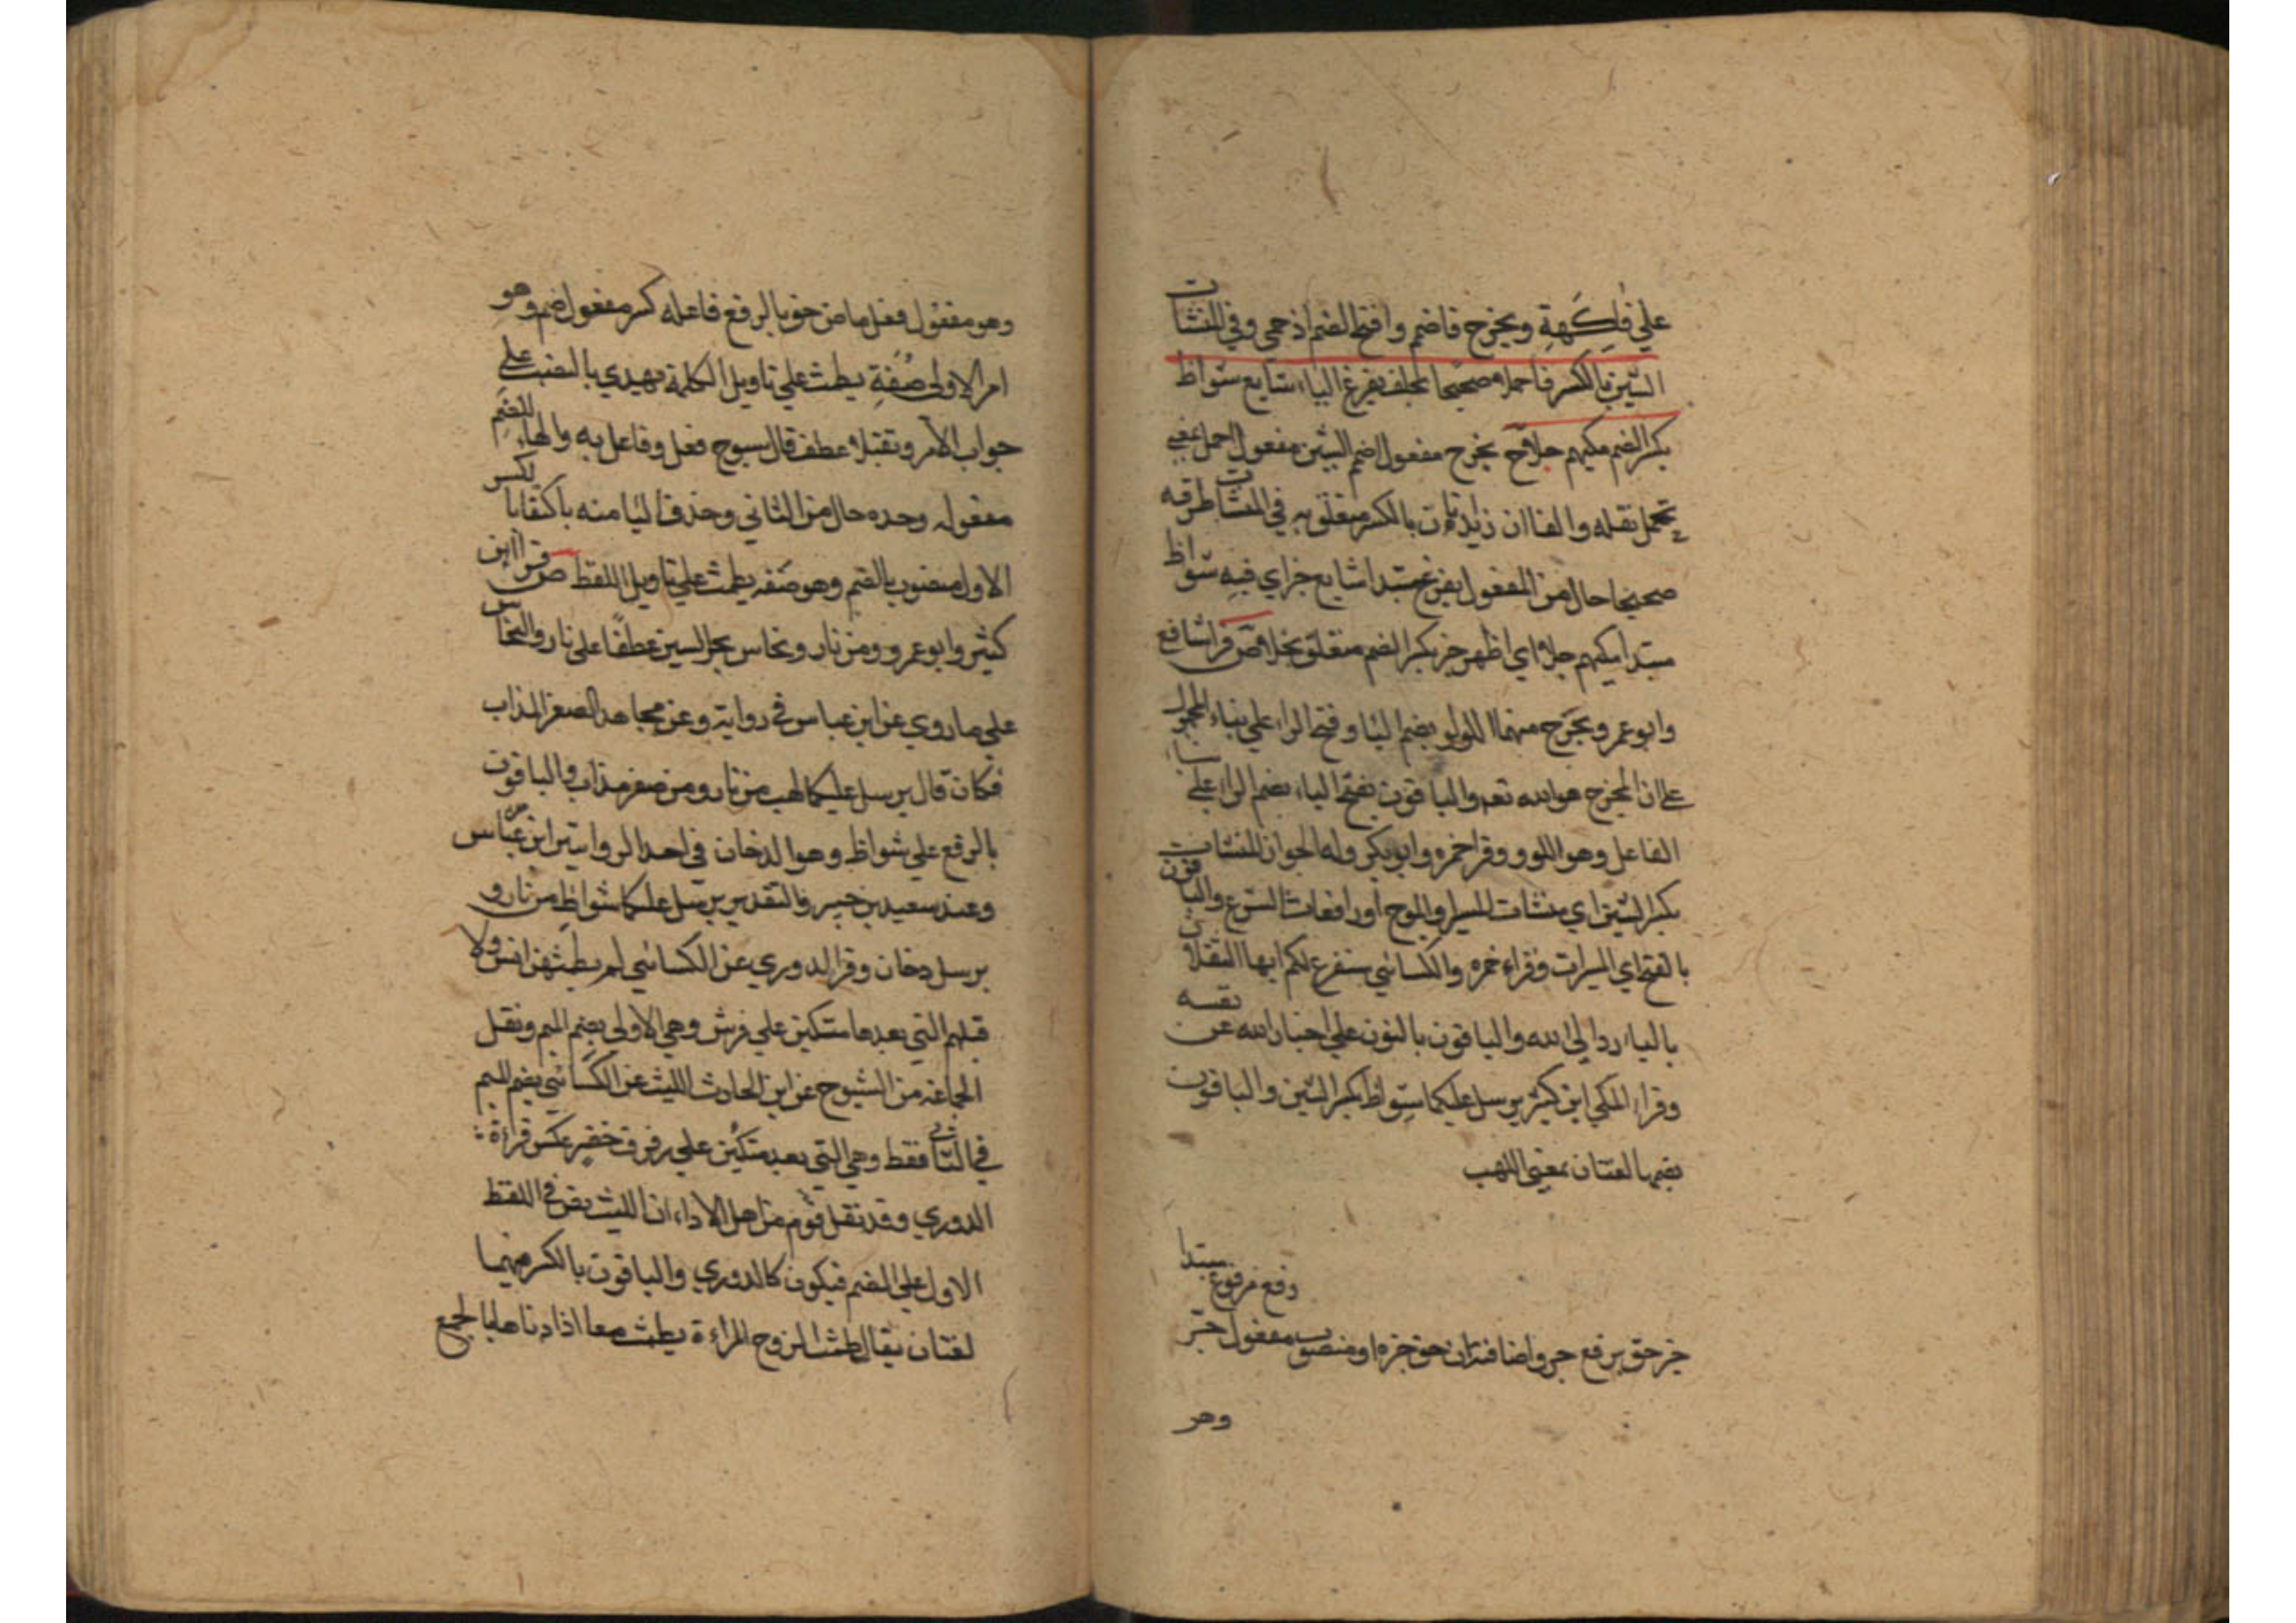 علي فاكهة ويخرج فاضم وافتح الضم اذ حمي وفي المنشات
الشين بالكسر فاحملا صحيحا بخلف يفرغ الياء شايع شواظ
بكسر الضم مكيهم جلا ح يخرج مفعول اضم الشين مفعول احمل بمعني
تحمل نقله والفاان زايدتان بالكسر متعلق به في المنشات ظرفه
صحيحا حال من المفعول يفرغ مبتدا شايع خبر اي فيه شواظ
مبتدا مكيهم جلا اي اظهر خبر بكسر الضم متعلق بجلا ص قرا نافع
وابو عمرو يخرج منهما اللولو بضم اليا وفتح الراء علي بناء المجهول
علي ان المخرج هو الله تعم والباقون بفتح الياء بضم الراء علي بناء
الفاعل وهو اللوو وقرا حمزه وابو بكر وله الجوار المنشات
بكسر الشين اي منشات السير او الموج او رافعات الشرع والباقون
بالفتح اي المسيرات وقراء حمزه والكسائي سنفرغ لكم ايها الثقلان
بالياء ردا الي الله والباقون بالنون علي اخبار الله عن نفسه
وقراء المكي ابن كثير يرسل عليكما شواظ بكسر الشين والباقون
بضمها لغتان بمعني اللهب
رفع مرفوع مبتدا
خبر حق يرفع جر واضافتان نحو خبره او منصوب مفعول جر
وهر
وهو مفعول فعل ماض حق بالرفع فاعله كسر مفعول اضم وهو
امر الاولي صفة يطمث علي تاويل الكلمة تهدي بالنصب علي
جواب الامر وتقبلا عطف قال شيوخ فعل وفاعل به والهاء للضم
مفعول وحده حال من الثاني وحذف اليا منه باكتفا بالكسر
الاول منصوب بالضم وهو صفه يطمث علي تاويل اللفظ ص قرا ابن
كثير وابو عمرو ومن نار ونحاس بجر السين عطفا علي نار والنحاس
علي ما روي عن ابن عباس في رواية وعن مجاهد الصفر المذاب
فكان قال يرسل عليكما لهب من نار ومن صفر مذاب والباقون
بالرفع علي شواظ وهو الدخان في احد الروايتين ابن عباس
وعند سعيد بن جبير والتقدير يرسل عليكما شواظ من نار و
يرسل دخان وقرا الدوري عن الكسائي لم يطمثهن انس ولا
قبلهم التي بعدها متكئين علي فرش وهي الاولي بضم الميم ونقل
الجماعة من الشيوخ عن ابن الحارث الليث عن الكسائي بضم الميم
في الثاني فقط وهي التي بعد متكئين علي رفرف خضر عكس قراءة
الدوري وقد نقل قوم من اهل الاداء ان الليث يقرا في اللفظ
الاول علي الضم فيكون كالدوري والباقون بالكسر فيهما
لغتان يقال طمث الزوج المراءة يطمث معا اذا دناها بالجمع